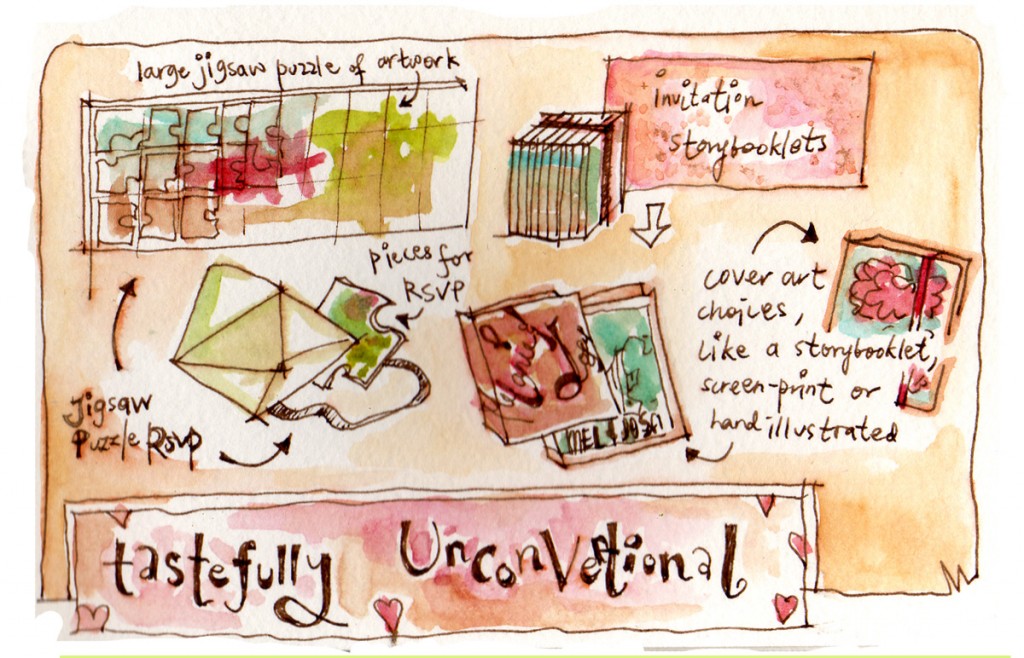 large jigsaw puzzle of artwork
invitation
storybooklets
pieces for
RSVP
cover art
choices,
like a storybooklet,
screen-print or
hand illustrated
Jigsaw
Puzzle RSVP
MEL & JOSH
tastefully UnconVentional